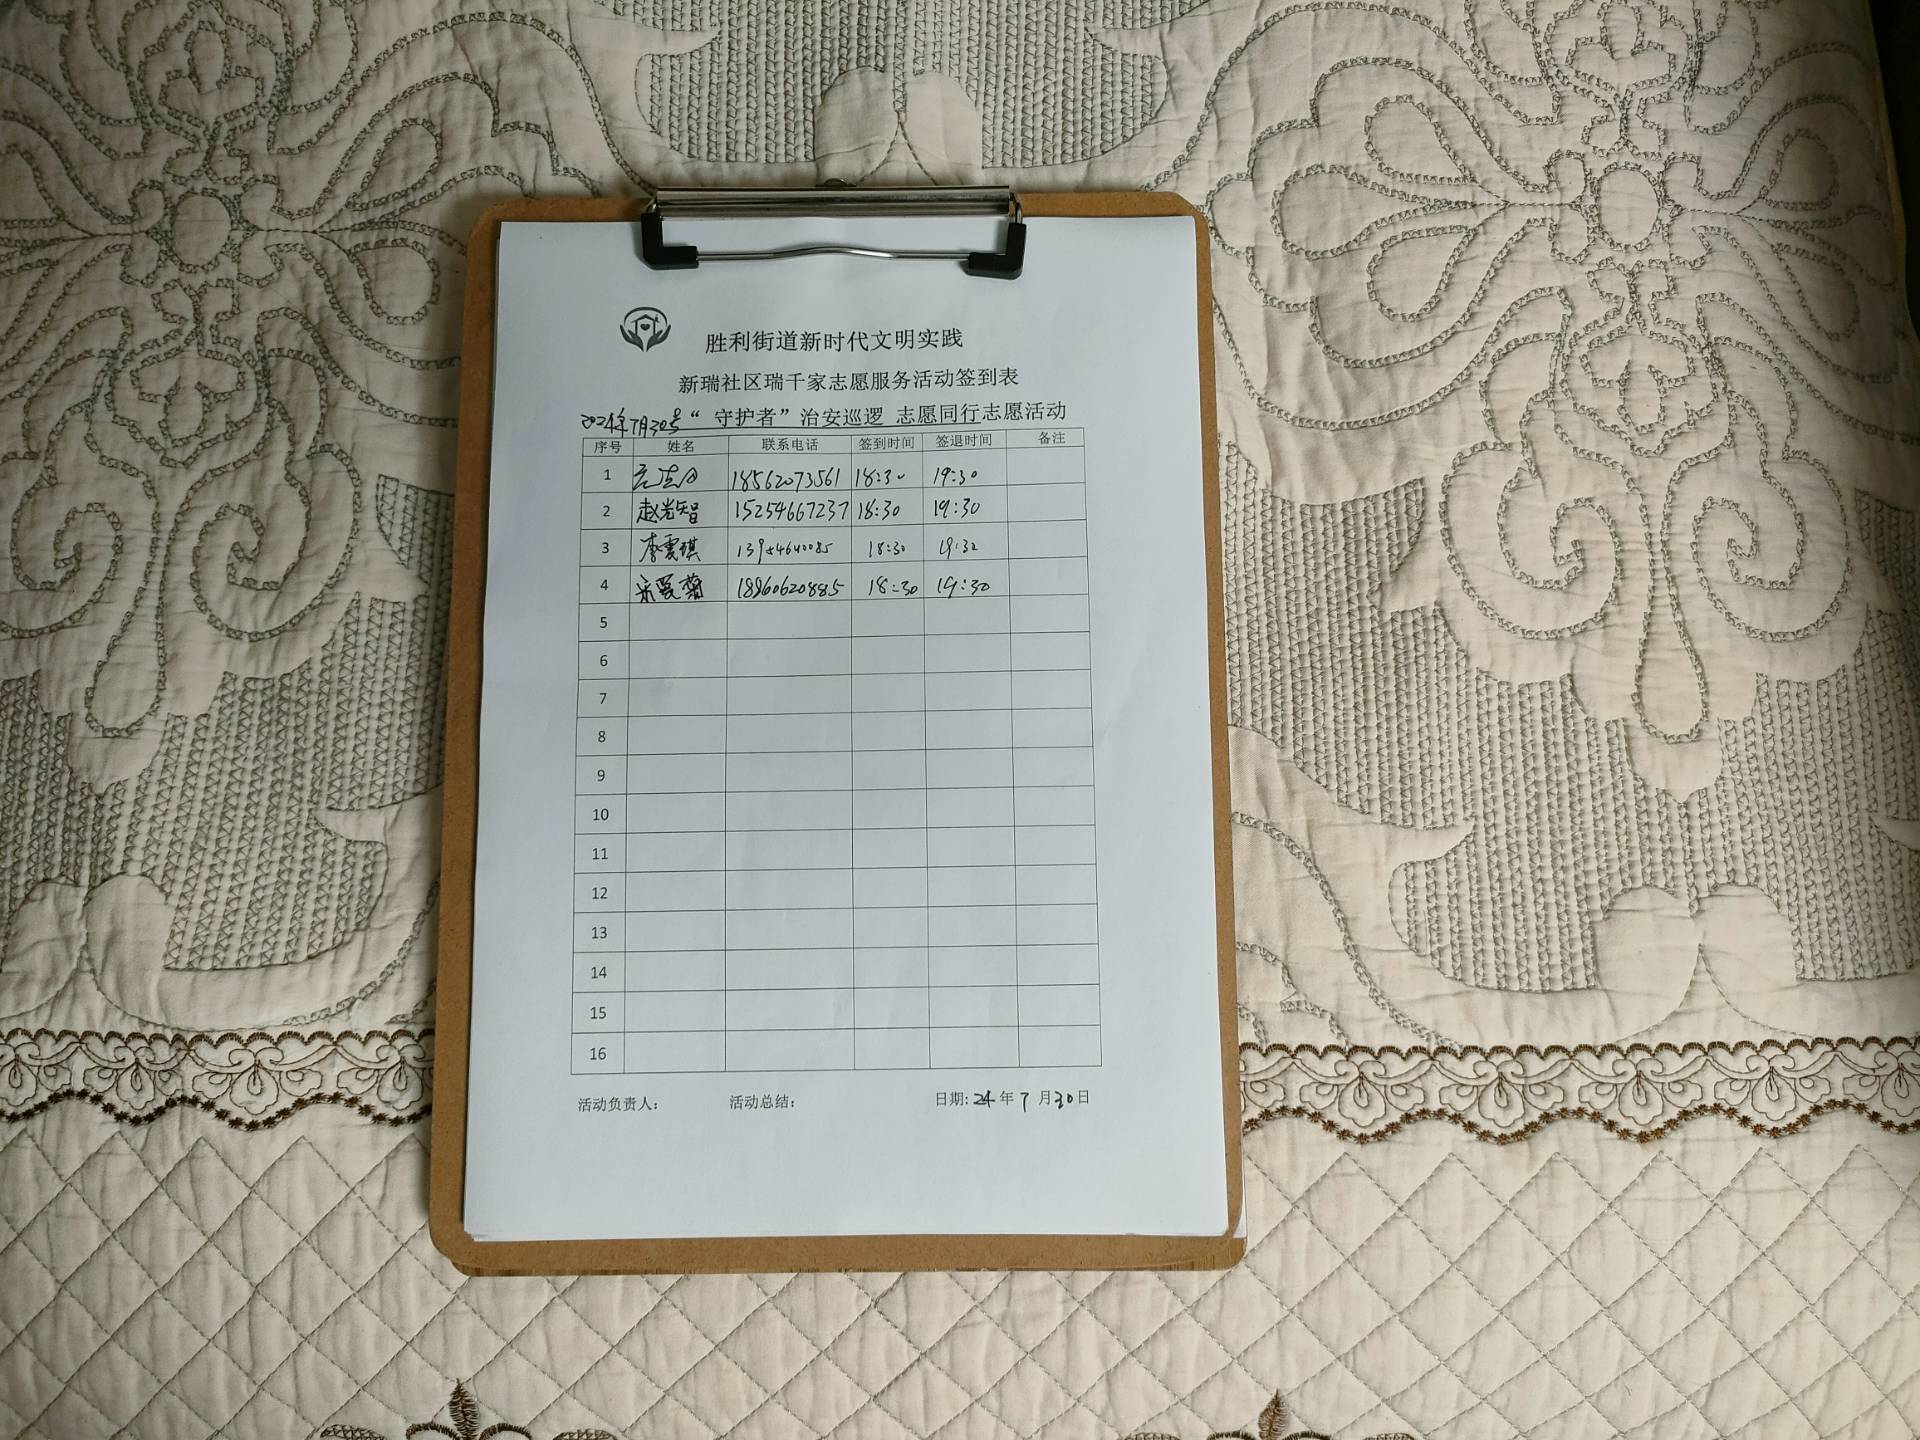 胜利街道新时代文明实践
新瑞社区瑞千家志愿服务活动签到表
2024年7月30号“守护者”治安巡逻 志愿同行志愿活动
序号 姓名 联系电话 签到时间 签退时间 备注
1 18562073561 18:30 19:30
2 赵光智 15254667237 18:30 19:30
3 李云琪 18:30 19:30
4 宋爱菊 18860620885 18:30 19:30
5
6
7
8
9
10
11
12
13
14
15
16
活动负责人: 活动总结: 日期:24年7月30日